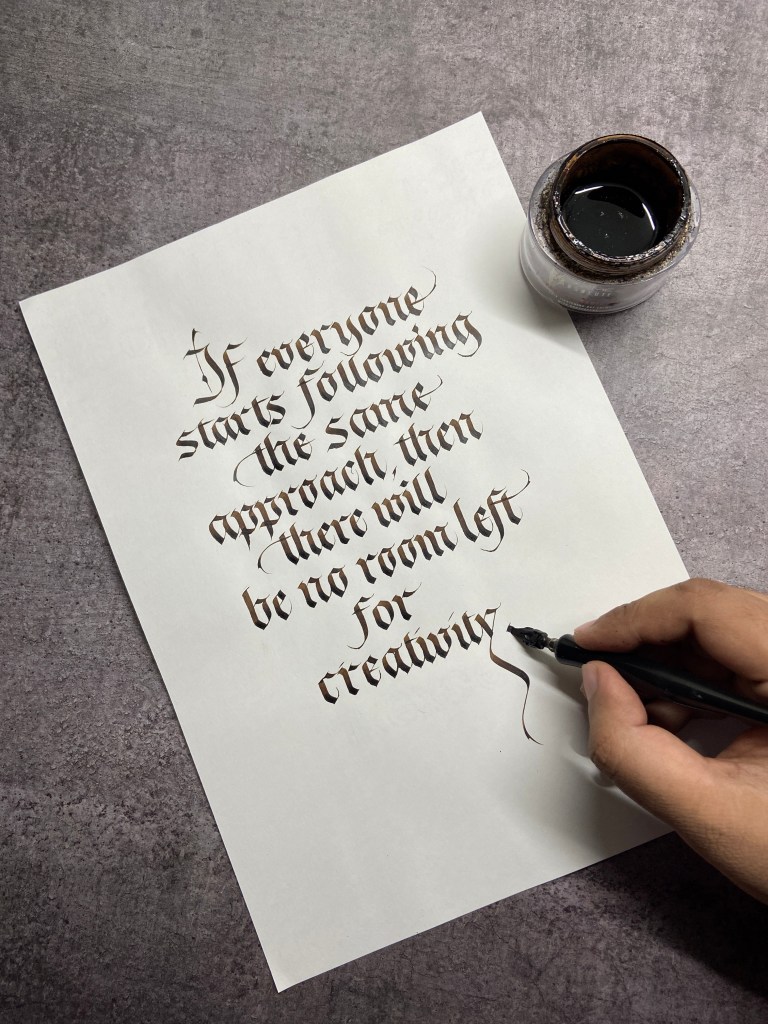 If everyone
starts following
the same
approach, then
there will
be no room left
for
creativity